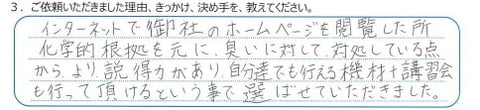 3．ご依頼いただきました理由、きっかけ、決め手を、教えてください。
インターネットで御社のホームページを閲覧した所
化学的根拠を元に、臭いに対して、対処している点
から、より説得力があり、自分達でも行える機材+講習会
も行って頂けるという事で選ばせていただきました。